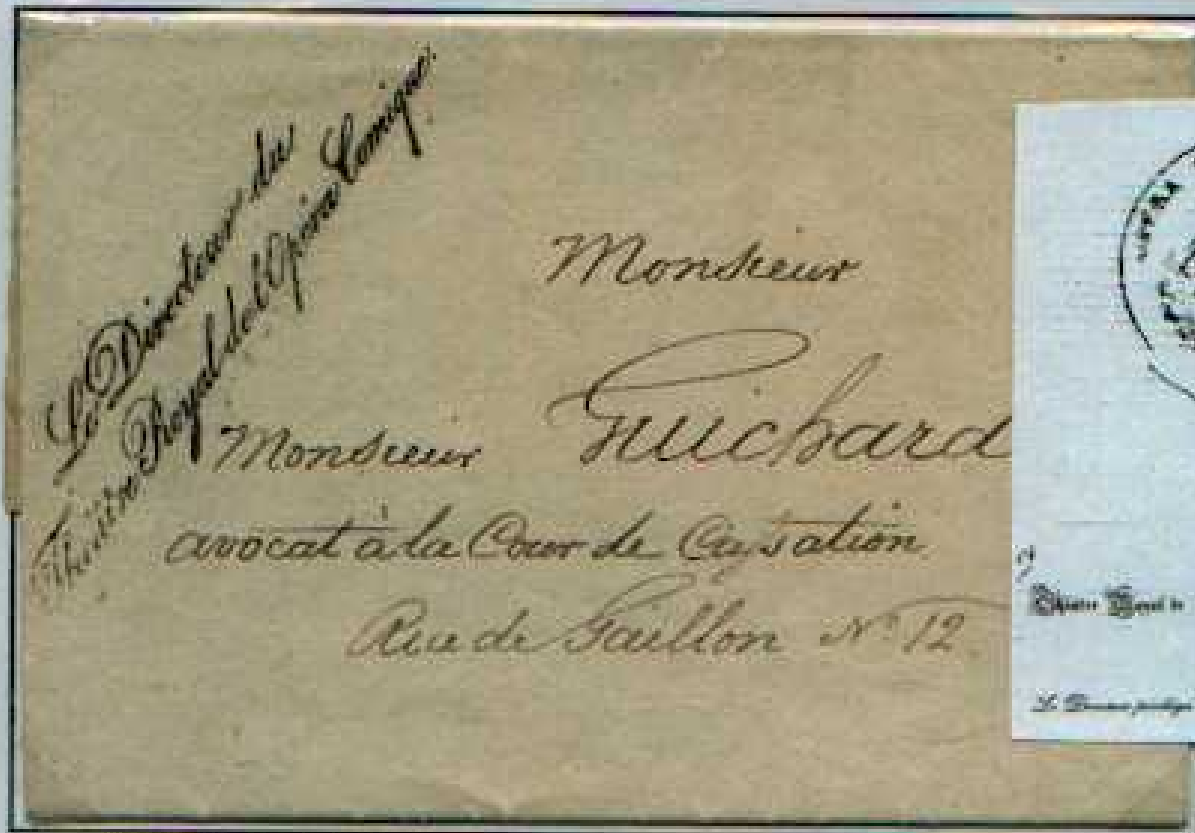 Le Directeur du
Théâtre Royal de l'Opéra Comique.
Monsieur
Monsieur Guichard
avocat à la Cour de Cassation
Rue de Gaillon N° 12
Théâtre Royal de
Le Directeur